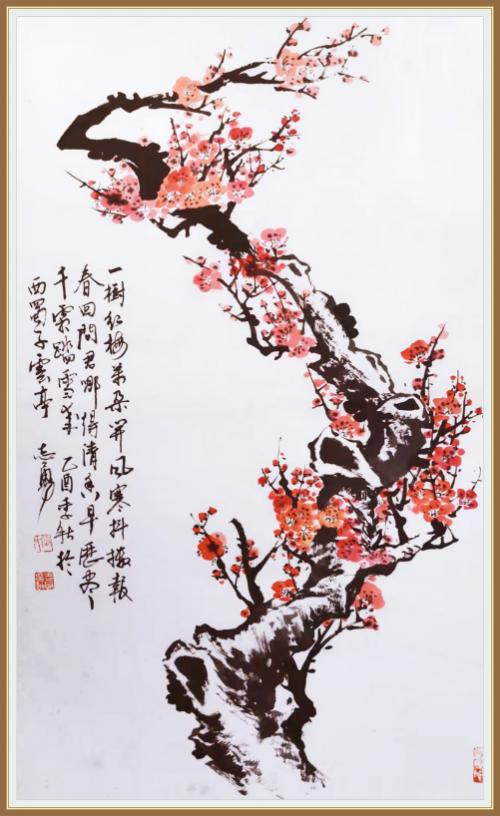 一樹红梅万朵开风寒抖擞報
春回問君哪得清香早歷尽
千霜踏雪来 乙酉季秋於
西蜀子雲亭 志勇